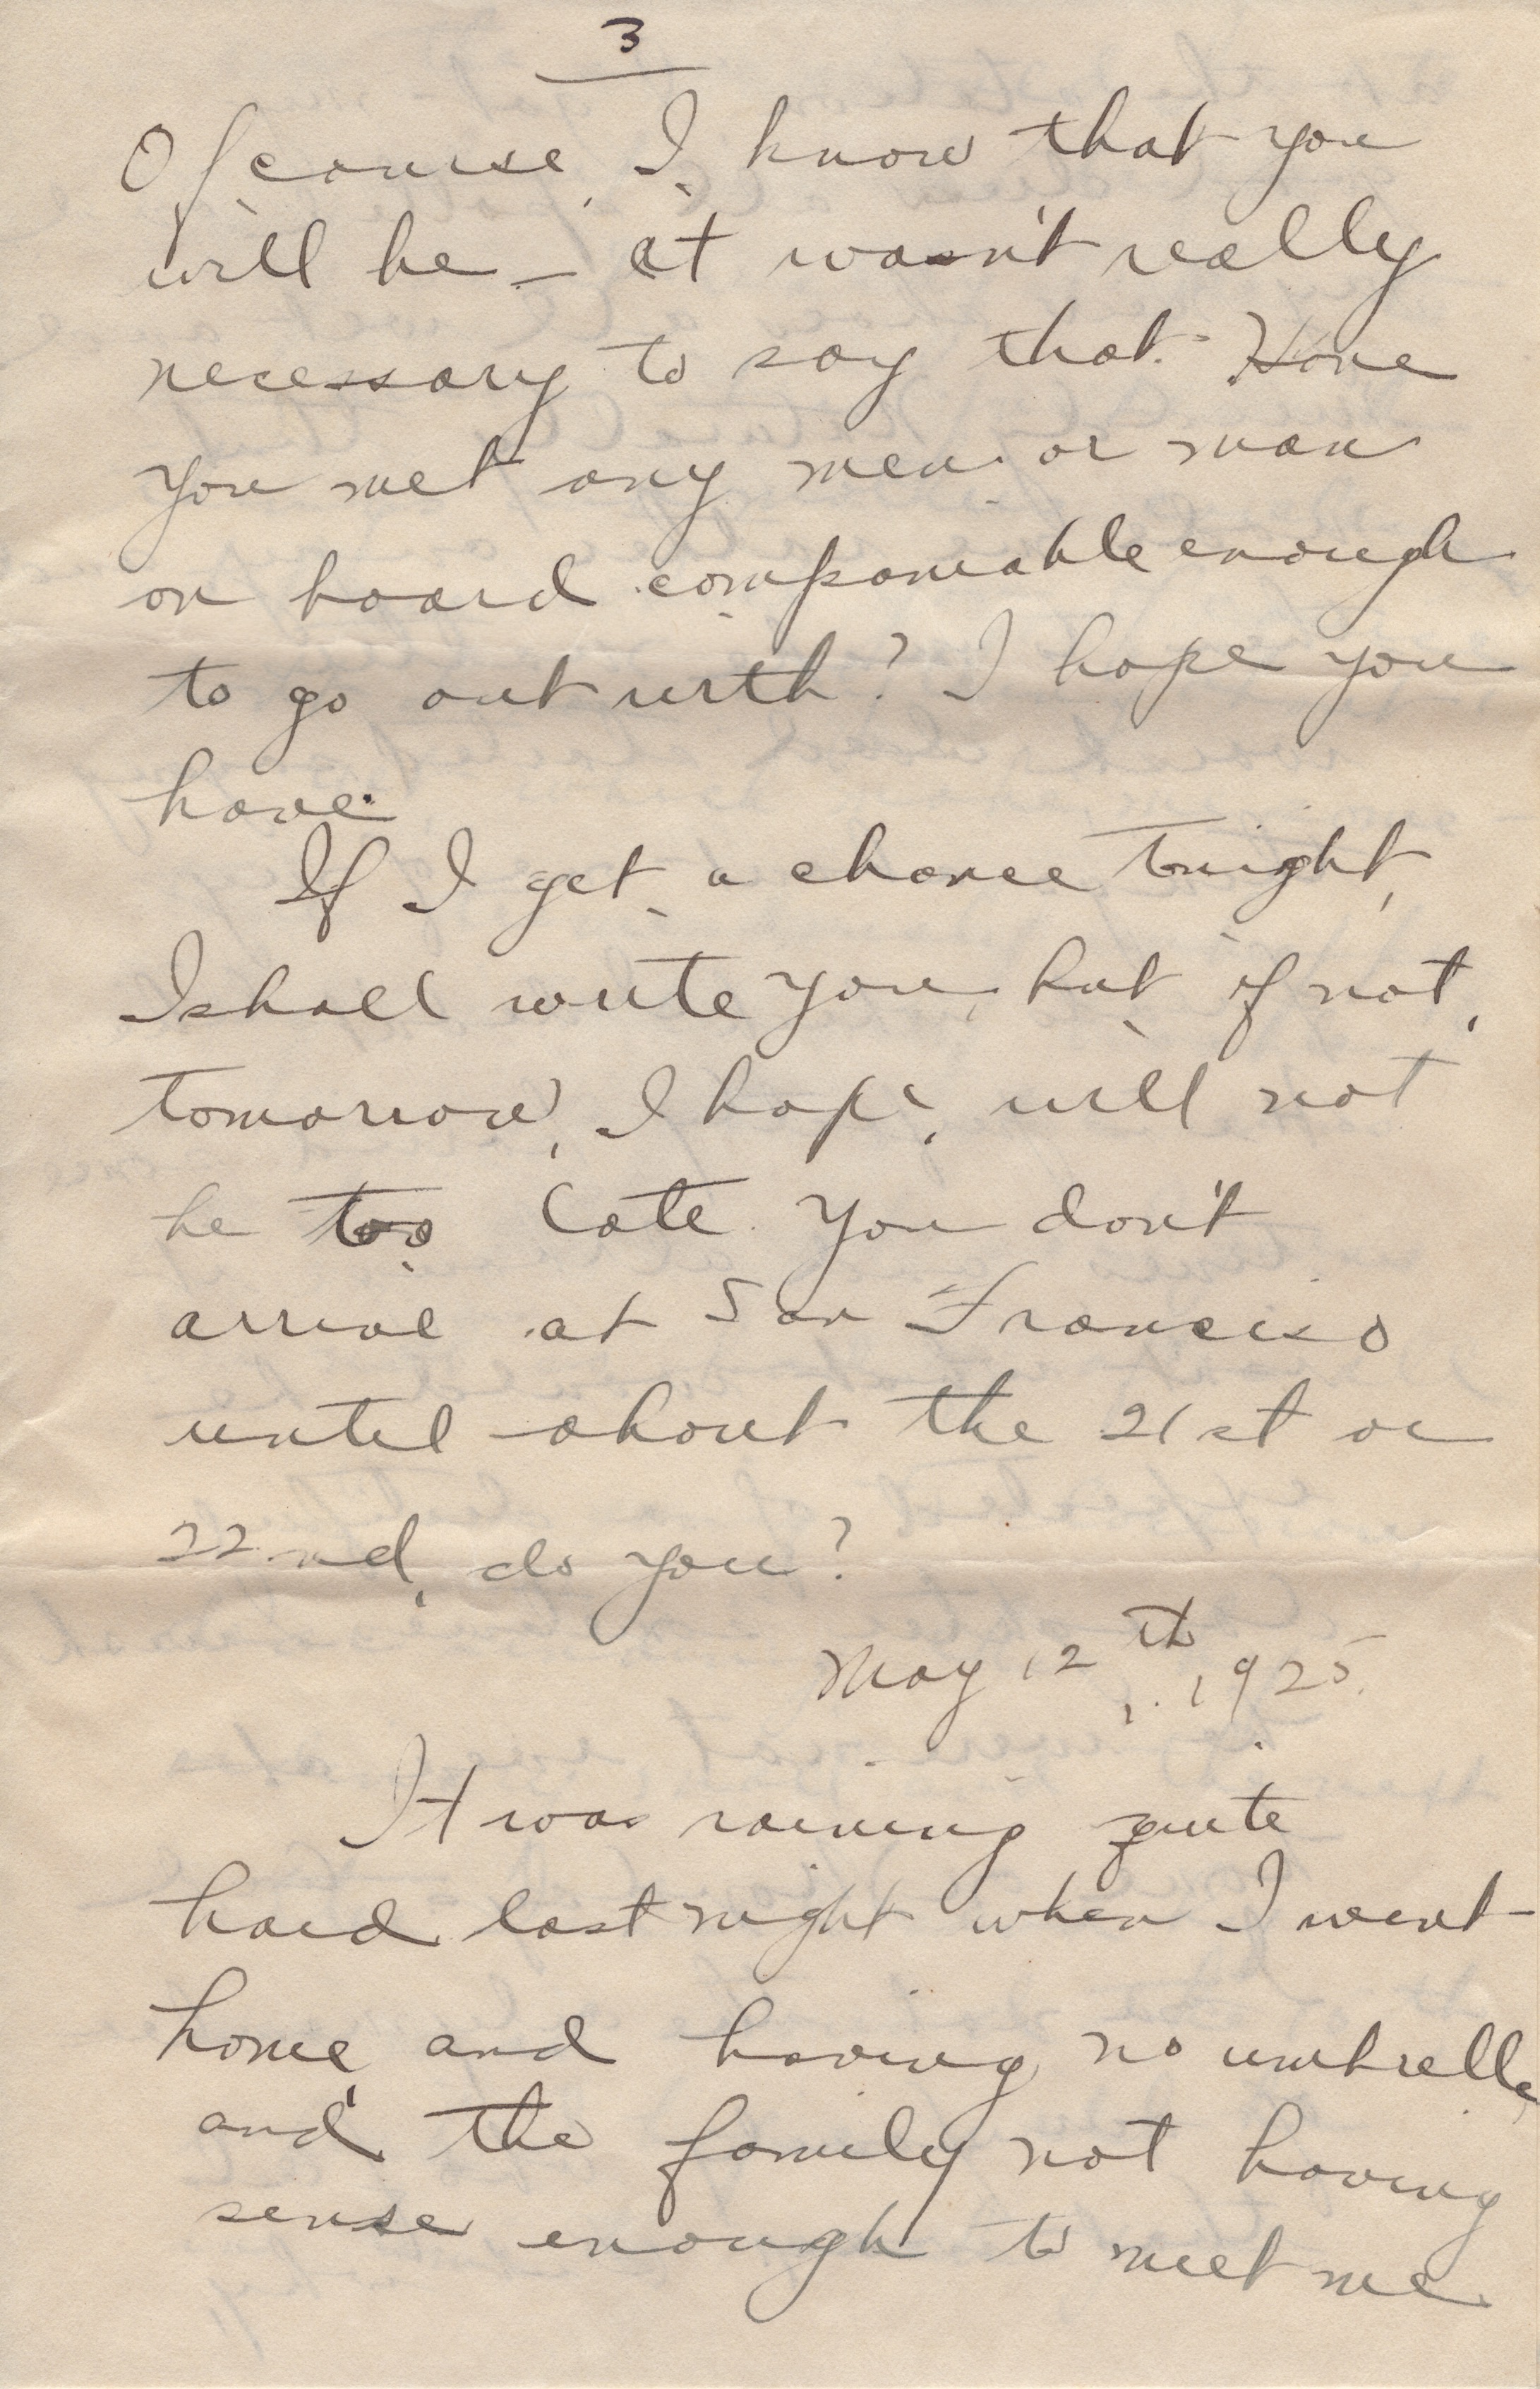 3
Of course, I know that you
will be - it wasn't really
necessary to say that. Have
you met any men or man
on board companionable enough
to go out with? I hope you
have.
If I get a chance tonight,
I shall write you, but if not,
tomorrow, I hope, will not
be too late. You don't
arrive at San Francisco
until about the 21st or
22nd, do you?
May 12th, 1925.
It was raining quite
hard last night when I went
home, and having no umbrella,
and the family not having
sense enough to meet me